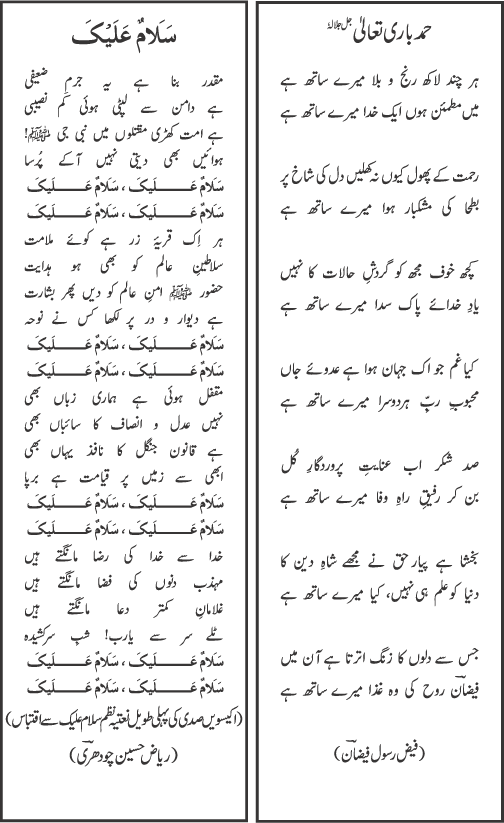 حمد باری تعالیٰ جل جلالہ
ہر چند لاکھ رنج و بلا میرے ساتھ ہے
میں مطمئن ہوں ایک خدا میرے ساتھ ہے
رحمت کے پھول کیوں نہ کھلیں دل کی شاخ پر
بطحا کی مشکبار ہوا میرے ساتھ ہے
کچھ خوف مجھ کو گردشِ حالات کا نہیں
یادِ خدائے پاک سدا میرے ساتھ ہے
کیا غم جو اک جہان ہوا ہے عدوئے جاں
محبوبِ ربِّ ہر دوسرا میرے ساتھ ہے
صد شکر اب عنایتِ پروردگارِ کُل
بن کر رفیقِ راہِ وفا میرے ساتھ ہے
بخشا ہے پیار حق نے مجھے شاہِ دین کا
دنیا کو علم ہی نہیں، کیا میرے ساتھ ہے
جس سے دلوں کا زنگ اترتا ہے آن میں
فیضانؔ روح کی وہ غذا میرے ساتھ ہے
(فیض رسول فیضانؔ)
سَلَامٌ عَلَیْکَ
مقدر بنا ہے یہ جرمِ ضعیفی
ہے دامن سے لپٹی ہوئی کم نصیبی
ہے امت کھڑی مقتلوں میں نبی جی ﷺ!
ہوائیں بھی دیتی نہیں آکے پُرسا
سَلَامٌ عَلَیکَ ، سَلَامٌ عَلَیکَ
سَلَامٌ عَلَیکَ ، سَلَامٌ عَلَیکَ
ہر اِک قریۂ زر ہے کوئے ملامت
سلاطینِ عالم کو بھی ہو ہدایت
حضور ﷺ امنِ عالم کو دیں پھر بشارت
ہے دیوار و در پر لکھا کس نے نوحہ
سَلَامٌ عَلَیکَ ، سَلَامٌ عَلَیکَ
سَلَامٌ عَلَیکَ ، سَلَامٌ عَلَیکَ
مقفل ہوئی ہے ہماری زباں بھی
نہیں عدل و انصاف کا سائباں بھی
ہے قانون جنگل کا نافذ یہاں بھی
ابھی سے زمیں پر قیامت ہے برپا
سَلَامٌ عَلَیکَ ، سَلَامٌ عَلَیکَ
سَلَامٌ عَلَیکَ ، سَلَامٌ عَلَیکَ
خدا سے خدا کی رضا مانگتے ہیں
مہذب دنوں کی فضا مانگتے ہیں
غلامانِ کمتر دعا مانگتے ہیں
ٹلے سر سے یارب! شبِ سرکشیدہ
سَلَامٌ عَلَیکَ ، سَلَامٌ عَلَیکَ
سَلَامٌ عَلَیکَ ، سَلَامٌ عَلَیکَ
(اکیسویں صدی کی پہلی طویل نعتیہ نظم سلام علیک سے اقتباس)
(ریاض حسین چودھریؔ)